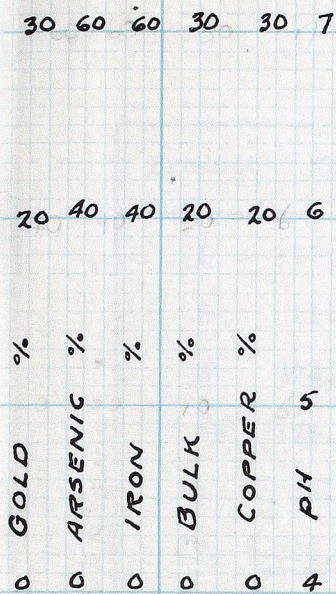 30 60 60 30 30 7
20 40 40 20 20 6
GOLD %
ARSENIC %
IRON %
BULK %
COPPER %
PH
5
0 0 0 0 0 4